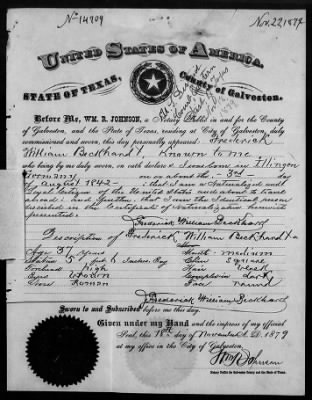 No 14909
Nov. 22, 1879
UNITED STATES OF AMERICA.
STATE OF TEXAS,
County of Galveston.
BEFORE ME, WM. R. JOHNSON, a Notary Public in and for the County
of Galveston, and the State of Texas, residing at City of Galveston, duly
commissioned and sworn, this day personally appeared Frederick
William Beckhard, Known to me
who being by me duly sworn, on oath declare that
Germany on or about the 3rd day
of August 1842 that I am a Naturalized and
Loyal Citizen of the United States and about to travel
abroad and further, that I am the Identical person
described in the Certificate of Naturalization herewith
presented.
Frederick William Beckhard
Description of Frederick William Beckhard
Age 37 years
Mouth medium
Stature 5 feet 6 inches, Eng.
Chin square
Forehead High
Hair black
Eyes brown
Complexion dark
Nose Roman
Face round
Frederick William Beckhard
Sworn to and Subscribed before me this day.
Given under my Hand and the impress of my official
Seal, this 18th day of November A.D. 1879
at my office in the City of Galveston.
Wm R Johnson
Notary Public for Galveston County and the State of Texas.